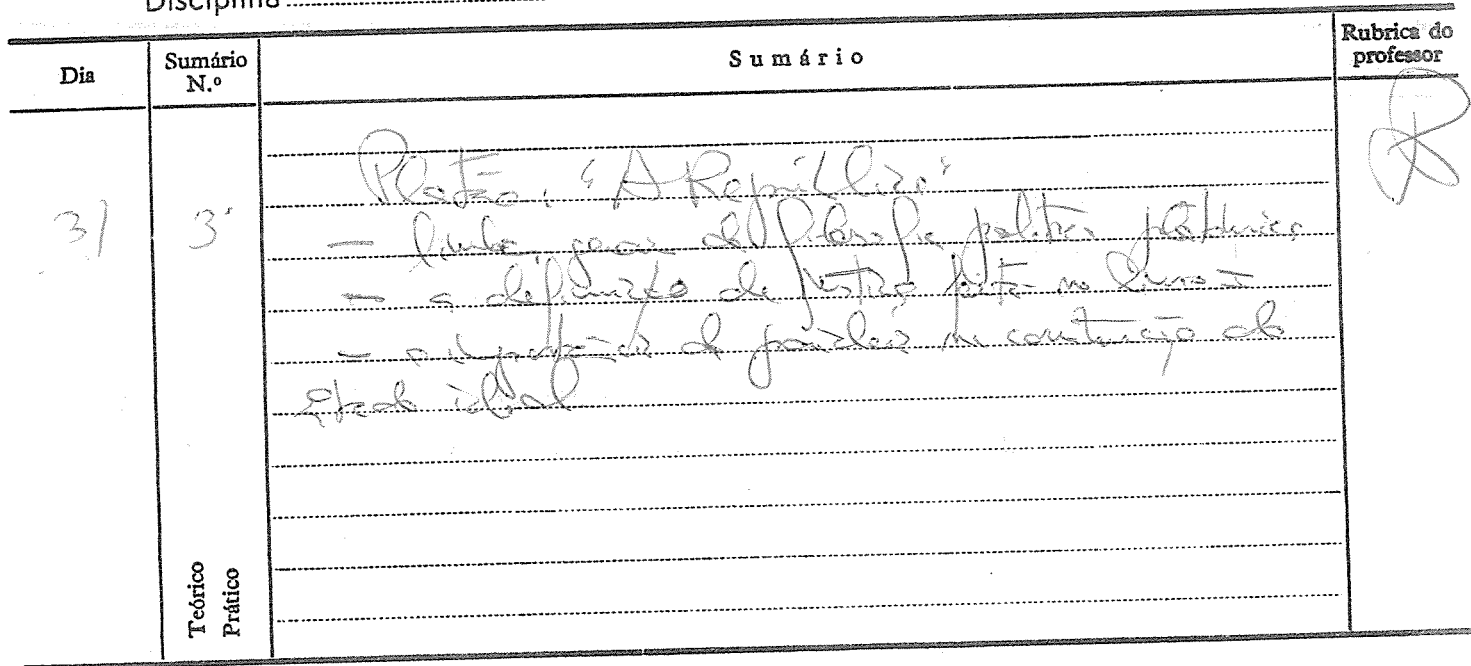 Disciplina
Dia
Sumário N.º
Sumário
Rubrica do professor
31
3ª
Platão, "A República"
- linhas gerais da filosofia política platónica
- a definição de justiça feita no livro I
- a importância da paideia na construção do
Estado ideal
Teórico
Prático